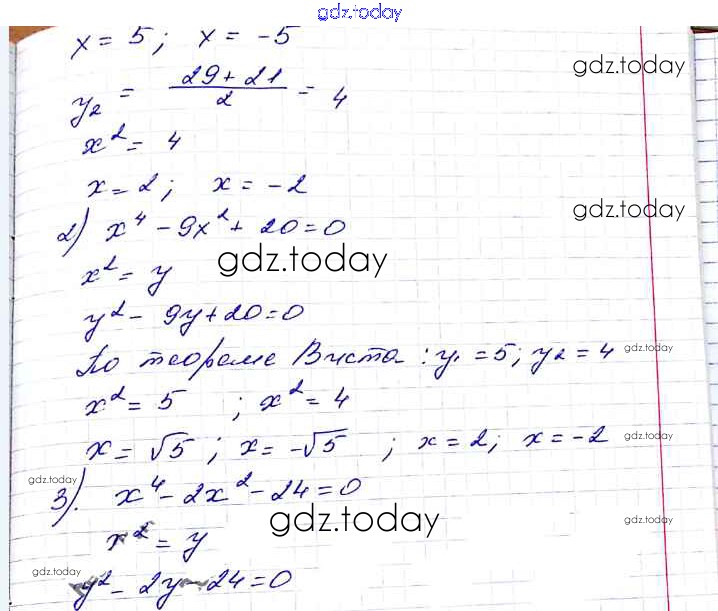 gdz.today
x = 5; x = -5
gdz.today
y₂ = (29+21)/2 = 4
x² = 4
x = 2; x = -2
gdz.today
2) x⁴ - 9x² + 20 = 0
gdz.today
x² = y
y² - 9y + 20 = 0
По теореме Виета: y₁ = 5; y₂ = 4
gdz.today
x² = 5 ; x² = 4
x = √5 ; x = -√5 ; x = 2; x = -2
gdz.today
gdz.today
3). x⁴ - 2x² - 24 = 0
gdz.today
gdz.today
x² = y
gdz.today
y² - 2y - 24 = 0